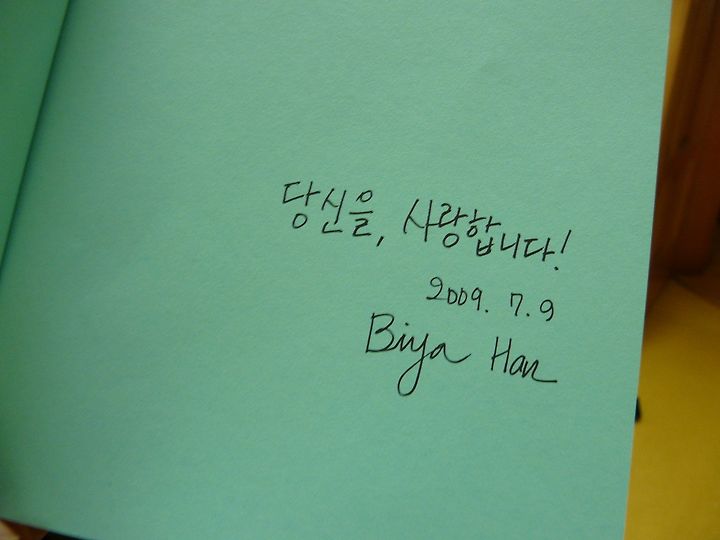 당신을, 사랑합니다!
2009. 7. 9
Biya Han